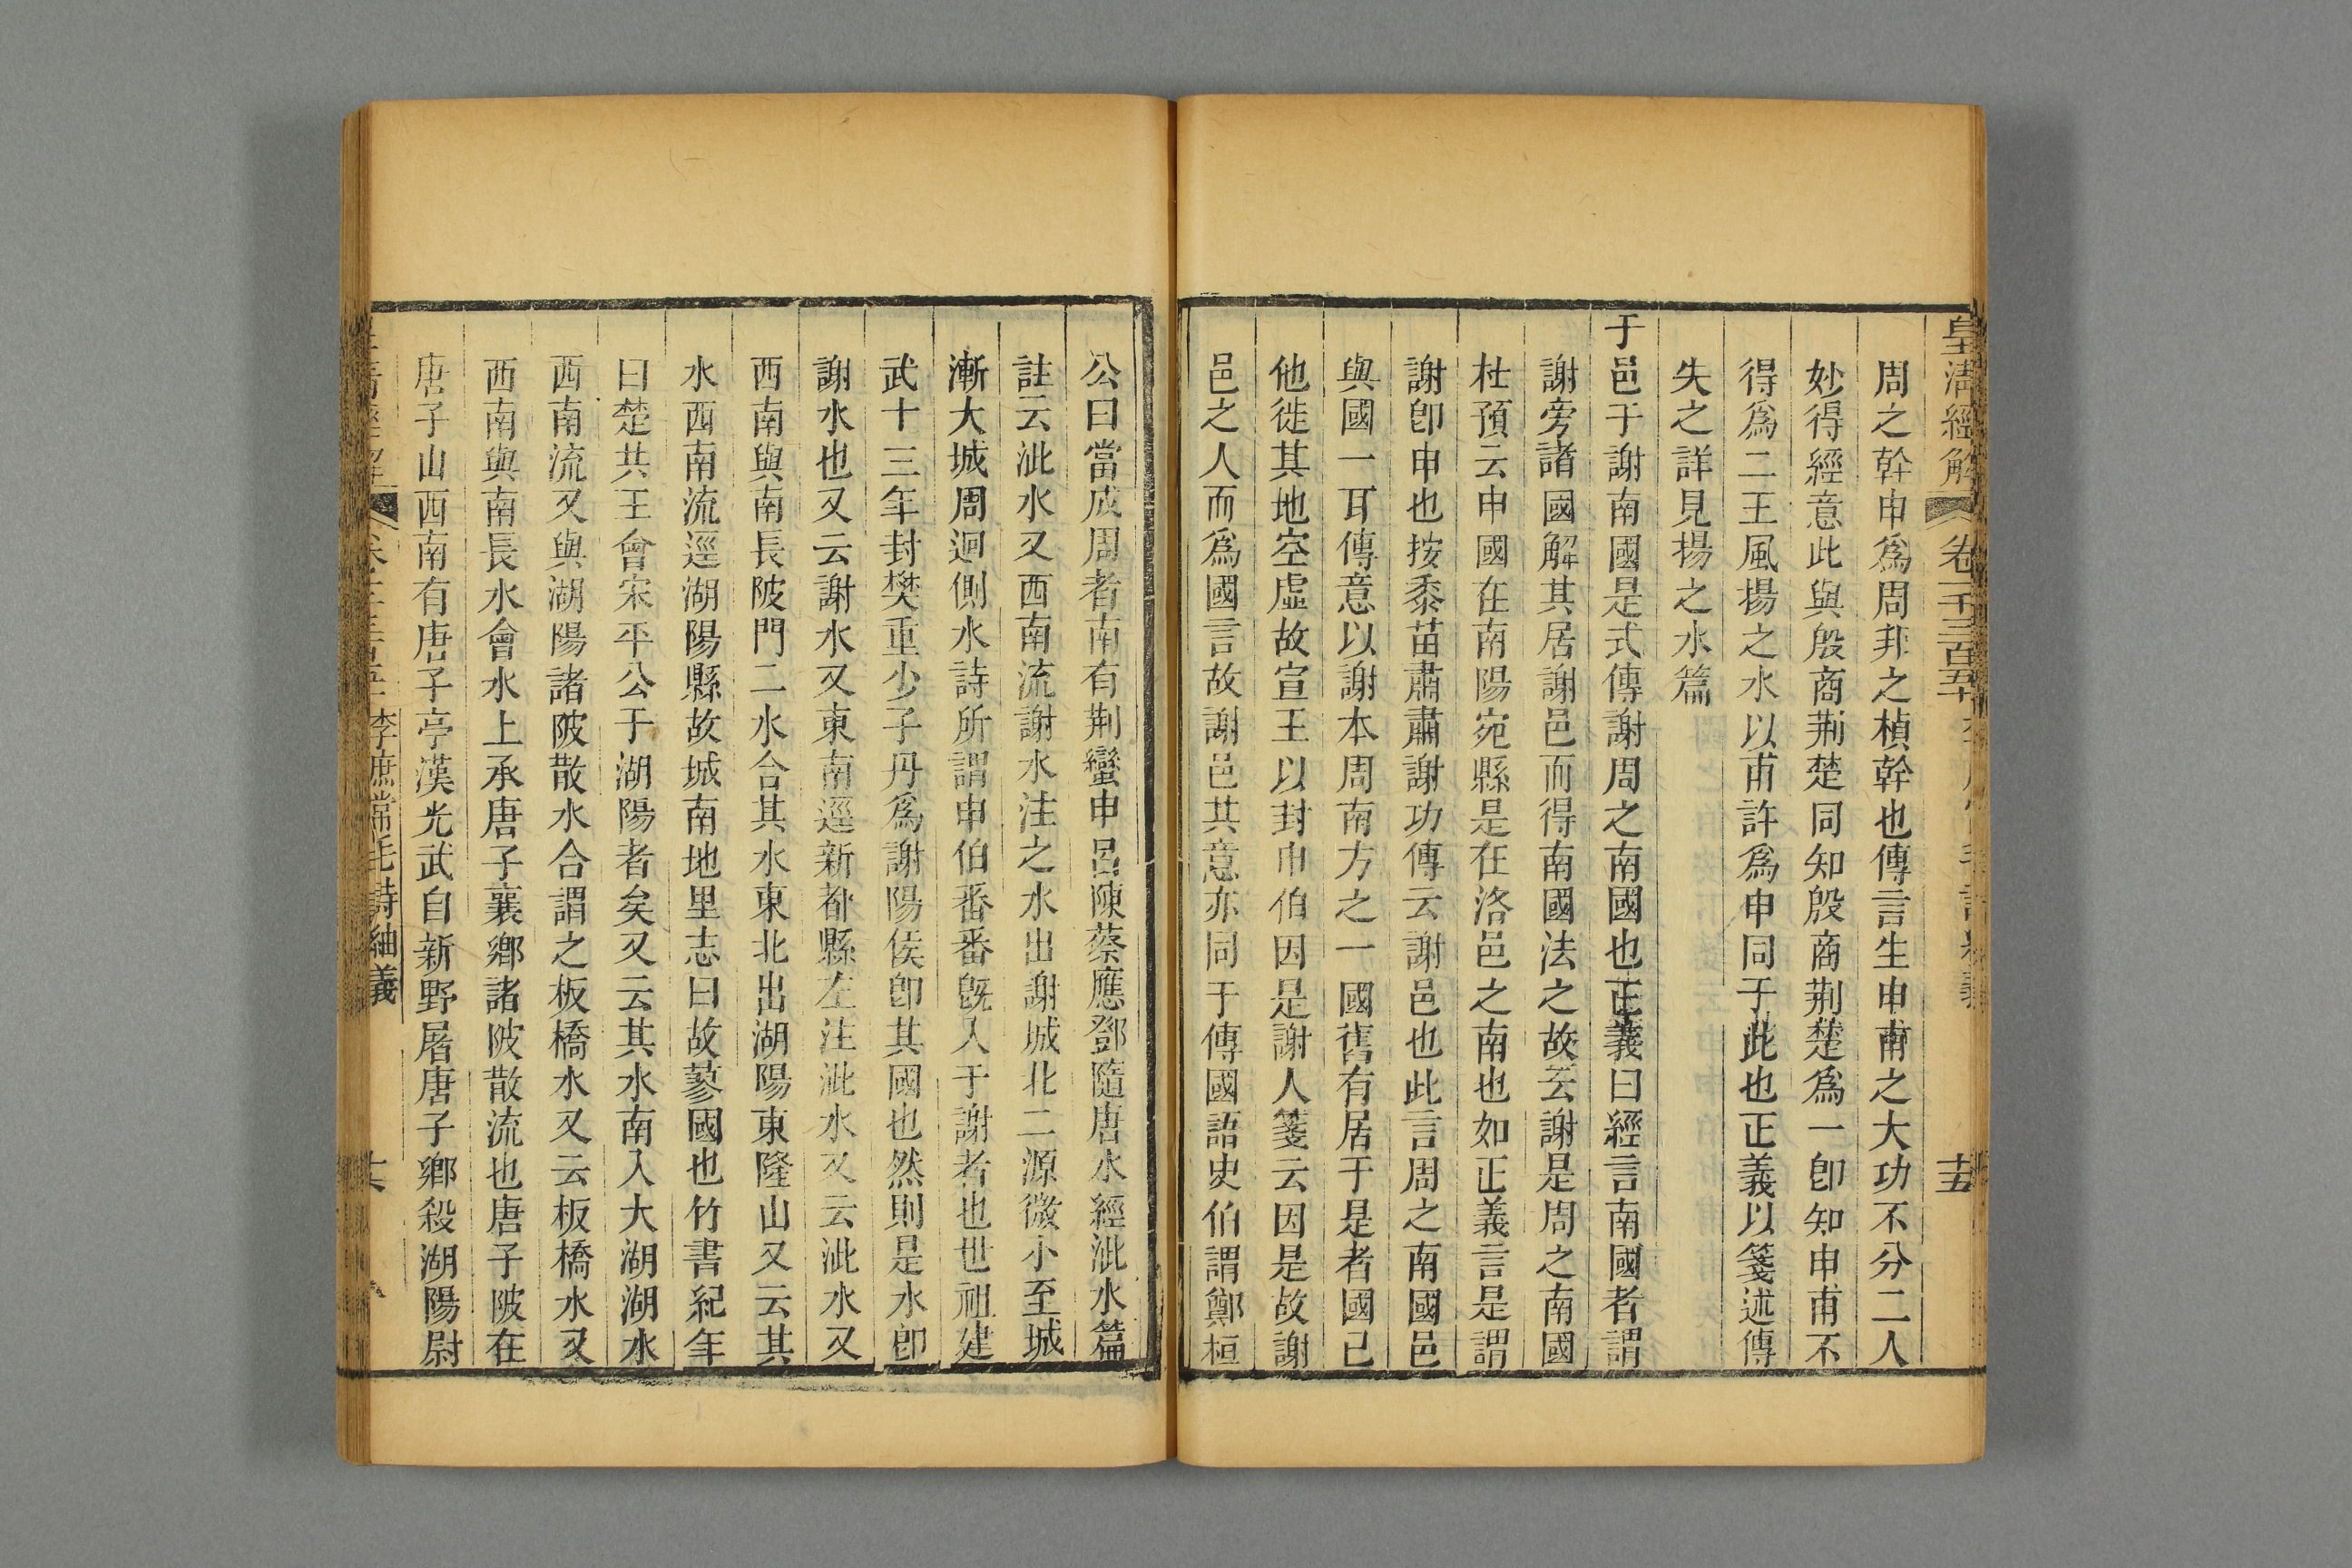 皇清經解 卷一千三百五十 十五
周之幹申爲周邦之楨幹也傳言生申甫之大功不分二人
妙得經意此與殷商荆楚同知殷商荆楚爲一卽知申甫不
得爲二王風揚之水以甫許爲申同于此也正義以箋述傳
失之詳見揚之水篇
于邑于謝南國是式傳謝周之南國也正義曰經言南國者謂
謝旁諸國解其居謝邑而得南國法之故云謝是周之南國
杜預云申國在南陽宛縣是在洛邑之南也如正義言是謂
謝卽申也按黍苗肅肅謝功傳云謝邑也此言周之南國邑
與國一耳傳意以謝本周南方之一國舊有居于是者國已
他徙其地空虛故宣王以封申伯因是謝人箋云因是故謝
邑之人而爲國言故謝邑其意亦同于傳國語史伯謂鄭桓
公曰當成周者南有荆蠻申呂陳蔡應鄧隨唐水經泚水篇
註云泚水又西南流謝水注之水出謝城北二源微小至城
漸大城周迴側水詩所謂申伯番番旣入于謝者也世祖建
武十三年封樊重少子丹爲謝陽侯卽其國也然則是水卽
謝水也又云謝水又東南逕新都縣左注泚水又云泚水又
西南與南長陂門二水合其水東北出湖陽東隆山又云其
水西南流逕湖陽縣故城南地里志曰故蓼國也竹書紀年
曰楚共王會宋平公于湖陽者矣又云其水南入大湖湖水
西南流又與湖陽諸陂散水合謂之板橋水又云板橋水又
西南與南長水會水上承唐子襄鄉諸陂散流也唐子陂在
唐子山西南有唐子亭漢光武自新野屠唐子鄉殺湖陽尉
李庶常毛詩紬義